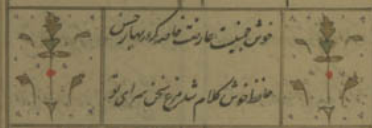 خوش چمنیست عارضت خاصه که در بهار حسن
حافظ خوش کلام شد مرغ سخن سرای تو